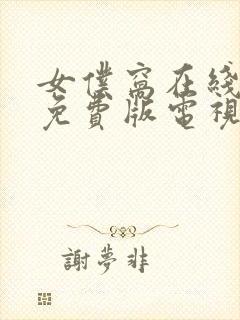 女僕窩在綫
免費版電視
謝夢非